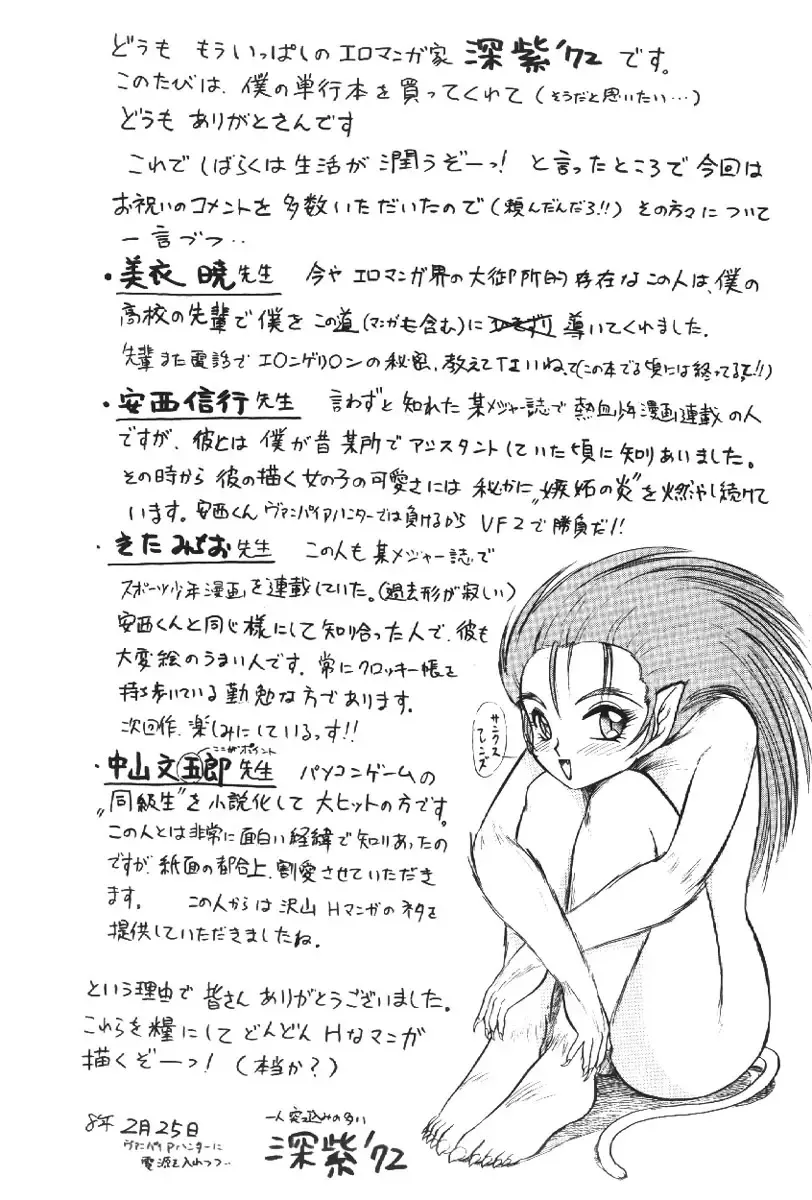 どうも もういっぱしのエロマンガ家 深紫'72 です。
このたびは、僕の単行本を買ってくれて(そうだと思いたい…)
どうもありがとさんです
これでしばらくは生活が潤うぞーっ! と言ったところで今回は
お祝いのコメントを多数いただいたので(頼んだんだろ!!)その方々について
一言づつ‥
・美衣 暁先生 今やエロマンガ界の大御所的存在なこの人は、僕の
高校の先輩で僕をこの道(マンガも含む)に 導いてくれました.
先輩また電話でエ○ンゲリ○ンの秘密、教えて下さいね、て(この本でる頃には終ってるって!!)
・安西信行先生 言わずと知れた某メジャー誌で熱血少年漫画連載の人
ですが、彼とは僕が昔某所でアシスタントしていた頃に知りあいました。
その時から彼の描く女の子の可愛さには秘かに"嫉妬の炎"を燃やし続けて
います。安西くんヴァンパイアハンターでは負けるからVF2で勝負だ!!
・きたみちお先生 この人も某メジャー誌で
スポーツ少年漫画を連載していた。(過去形が寂しい)
安西くんと同じ様にして知り合った人で、彼も
大変絵のうまい人です。常にクロッキー帳を
持ち歩いている勤勉な方であります。
次回作、楽しみにしているっす!!
ここがポイント
・中山文五郎先生 パソコンゲームの
"同級生"を小説化して大ヒットの方です。
この人とは非常に面白い経緯で知りあったの
ですが、紙面の都合上、割愛させていただき
ます。 この人からは沢山Hマンガのネタを
提供していただきましたね.
サンクス
フレンズ
という理由で皆さんありがとうございました。
これらを糧にしてどんどんHなマンガ
描くぞーっ!(本当か?)
8年2月25日
ヴァンパイアハンターに
電源を入れつつ‥
一人突込みの多い
深紫'72